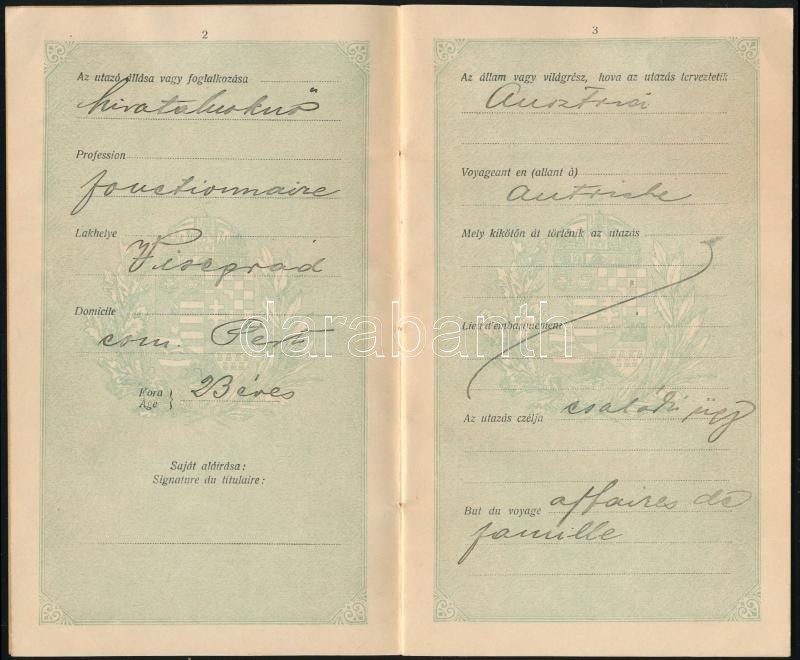 2
Az utazó állása vagy foglalkozása
hivatalnoknő
Profession
fonctionnaire
Lakhelye
Visegrád
Domicile
com. Pest
Kora
Age
23 éves
Saját aláírása:
Signature du titulaire:
3
Az állam vagy világrész, hova az utazás terveztetik
Ausztria
Voyageant en (allant à)
Autriche
Mely kikötőn át történik az utazás
Lieu d'embarquement
Az utazás czélja családi ügy
But du voyage affaires de
famille
darabanth